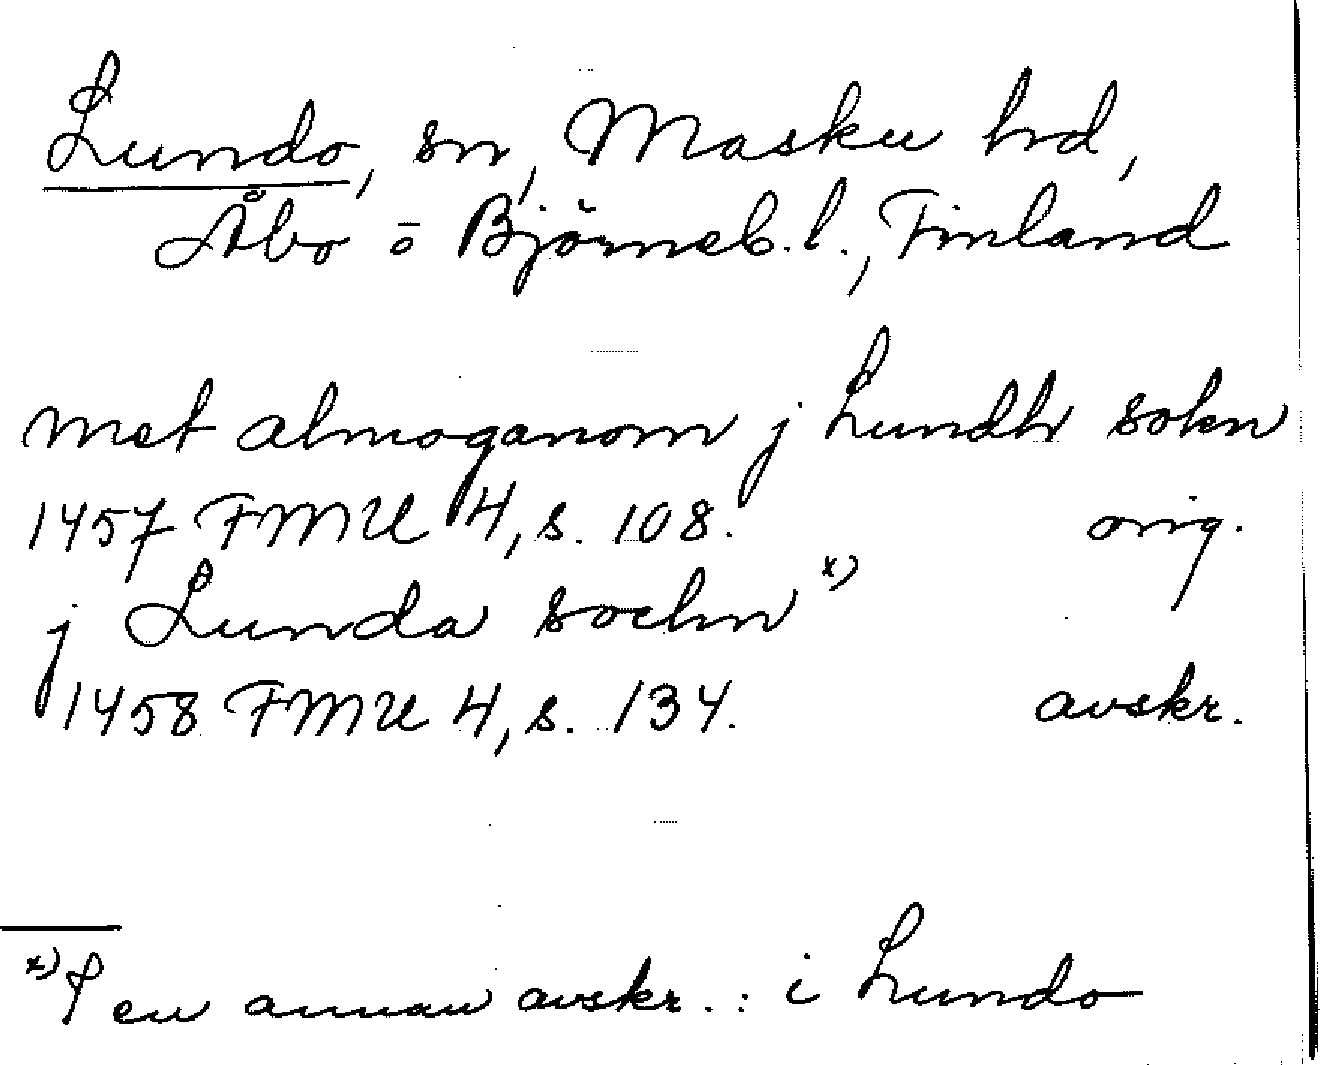 Lundo, sn, Masku hd,
Åbo o Björneb. l., Finland
met almoganom j Lundh sokn
1457 FMU 4, s. 108. orig.
j Lunda sochn x)
1458 FMU 4, s. 134. avskr.
x) I en annan avskr.: i Lundo